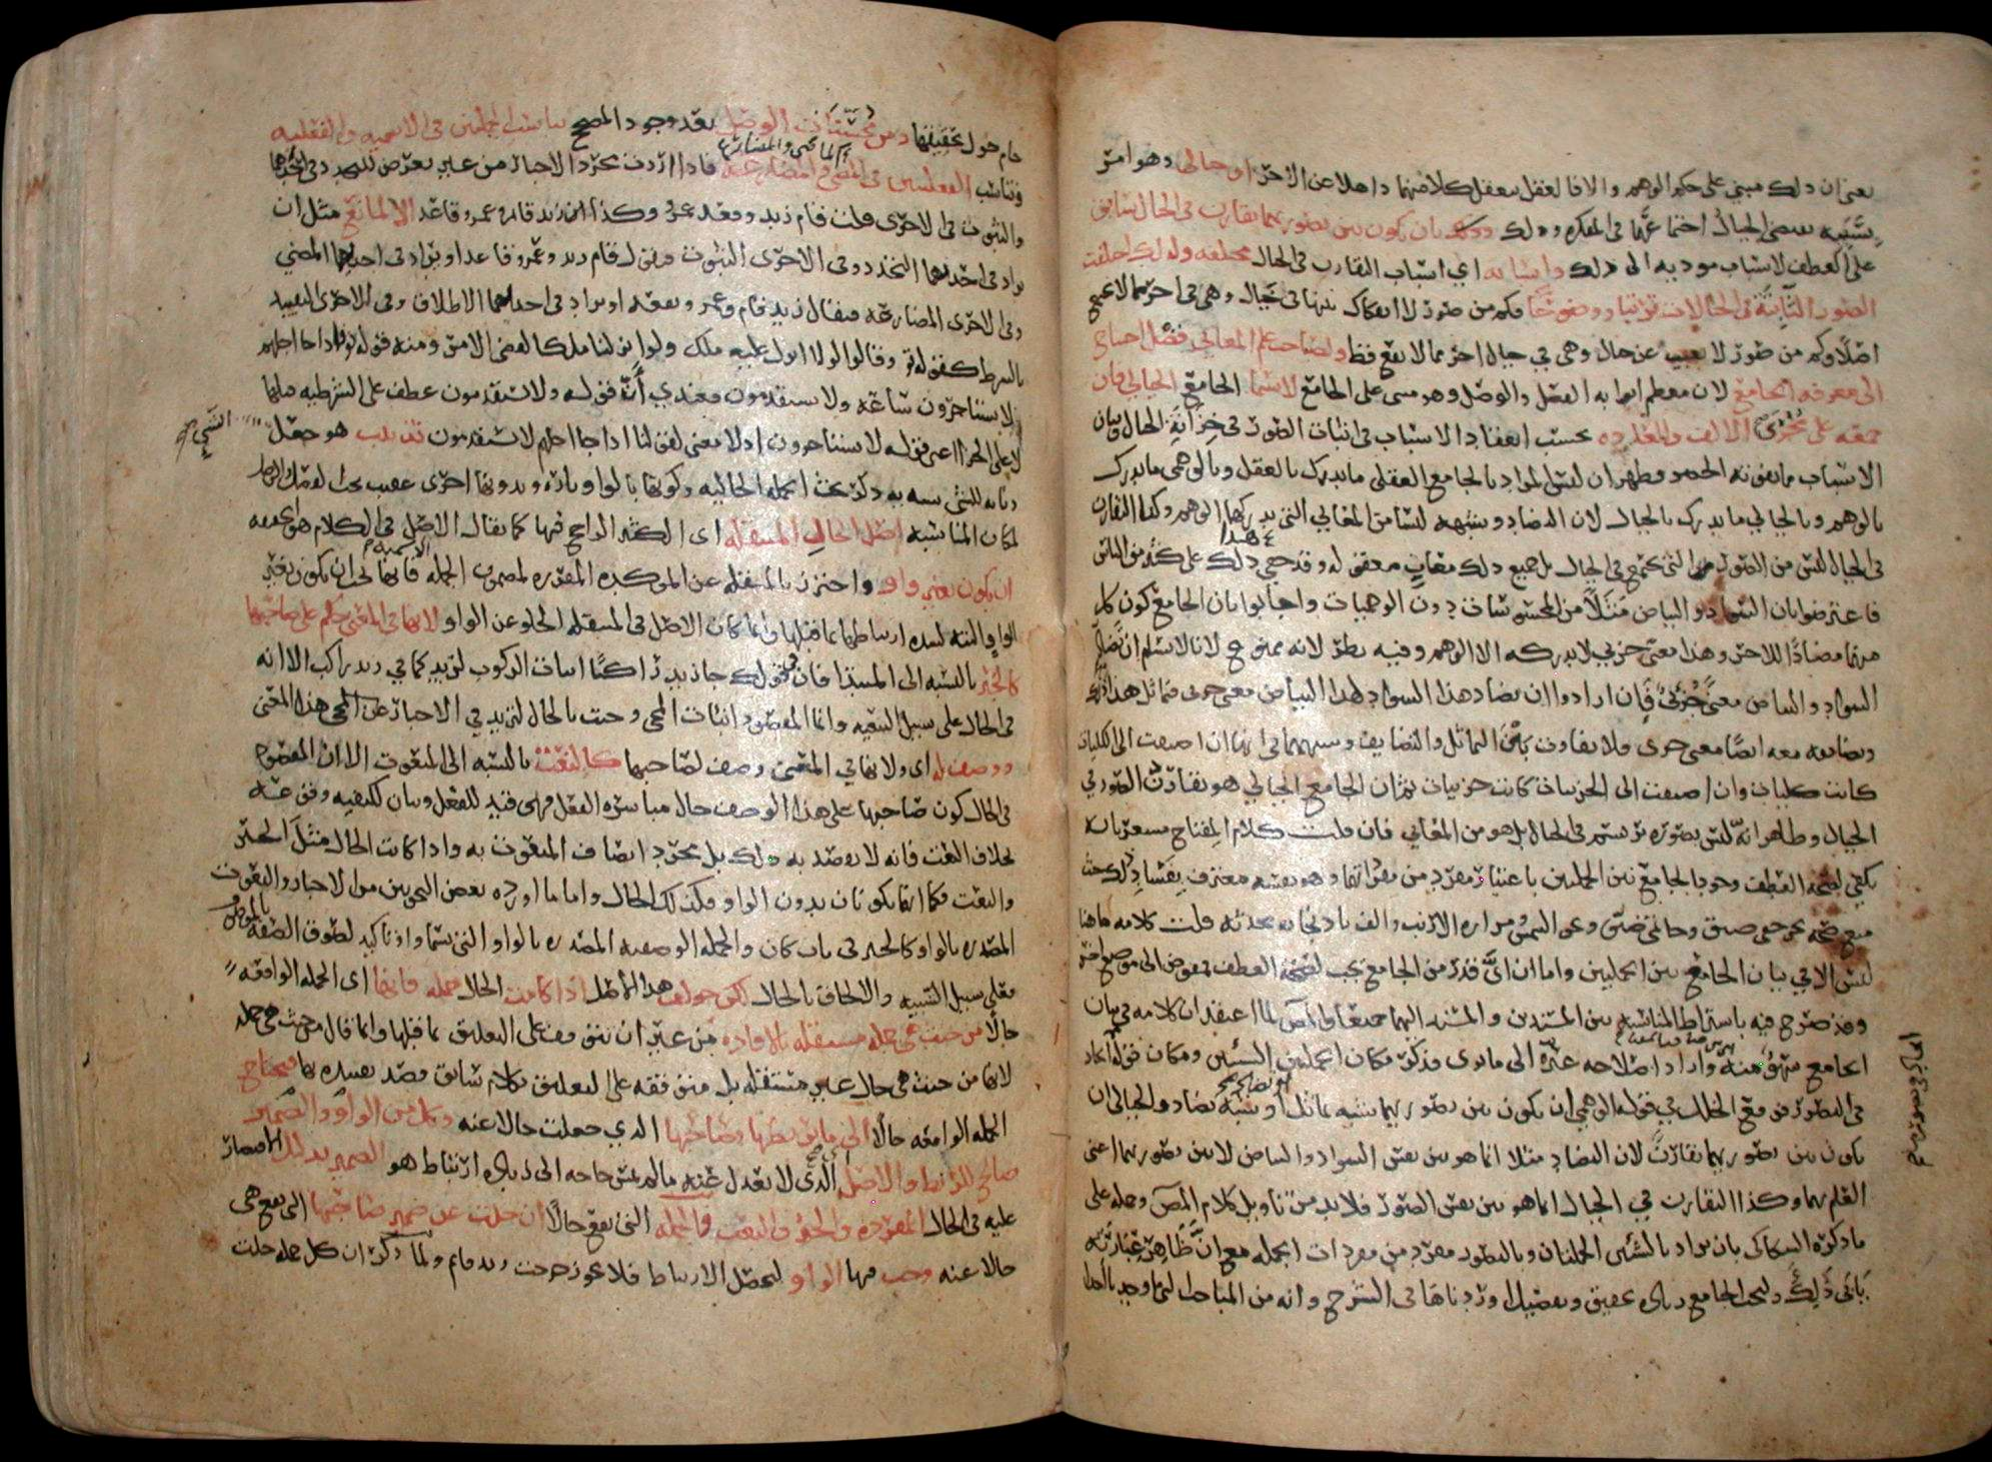 يعنى ان ذلك مبنى على حكم الوهم والا فالعقل يتعقل كلا منهما ذاهلا عن الاخر او خيالى وهو امر
بسببه يقتضى الخيال اجتماعهما فى المفكره وذلك بان يكون بين تصوريهما تقارن فى الخيال سابق
على العطف لاسباب موديه الى ذلك واسبابه اى اسباب التقارن فى الخيال مختلفه ولذلك اختلفت
الصور الثابته فى الخيالات ترتبا ووضوحا فكم من صور لا انفكاك بينها فى خيال وهى فى اخر مما لا تجتمع
اصلا وكم من صور لا تغيب عن خيال وهى فى خيال اخر مما لا يقع قط ولصاحب علم المعانى فضل احتياج
الى معرفه الجامع لان معظم ابوابه الفصل والوصل وهو مبنى على الجامع لا سيما الجامع الخيالى فان
جمعه على مجرى الالف والعاده بحسب انعقاد الاسباب فى اثبات الصور فى خزانه الخيال وتباين
الاسباب مما يفوته الحصر فظهر ان ليس المراد بالجامع العقلى ما يدرك بالعقل وبالوهمى ما يدرك
بالوهم وبالخيالى ما يدرك بالخيال لان التضاد وشبهه ليسا من المعانى التى يدركها الوهم وكذا التقارن
فى الخيال ليس من الصور التى تجتمع فى الخيال بل جميع ذلك معان معقوله وقد خفى ذلك على كثير من الناس
فاعترضوا بان السواد والبياض مثلا من المحسوسات دون الوهميات واجابوا بان الجامع كون كل
منهما مضادا للاخر وهذا معنى جزئى لا يدركه الا الوهم وفيه نظر لانه ممنوع لانا لا نسلم ان تضاد
السواد والبياض معنى جزئى فان ارادوا ان تضاد هذا السواد لهذا البياض معنى جزئى فتماثل هذا لذاك
وتضايفه معه ايضا معنى جزئى ولا تفاوت بين التماثل والتضايف وشبههما فى انها ان اضيفت الى الكليات
كانت كليات وان اضيفت الى الجزئيات كانت جزئيات ثم ان الجامع الخيالى هو تقارن الصور فى
الخيال وظاهر انه ليس بصوره ترتسم فى الخيال بل هو من المعانى فان قلت كلام المفتاح مشعر بانه
يكفى لصحه العطف وجود الجامع بين الجملتين باعتبار مفرد من مفرداتهما وهو نفسه معترف بفساد ذلك حيث
منع صحه نحو خفى ضيق وخاتمى ضيق ونحو الشمس ومراره الارنب والف باذنجانه محدثه قلت كلامه هاهنا
ليس الا فى بيان الجامع بين الجملتين واما ان اى قدر من الجامع يجب لصحه العطف فمفوض الى موضع اخر
وقد صرح فيه باشتراط المناسبه بين المسندين والمسند اليهما جميعا والمصنف لما اعتقد ان كلامه فى بيان
الجامع سهو منه واراد اصلاحه غيره الى ما ترى فذكر مكان الجملتين الشيئين ومكان قوله اتحاد
فى التصور فوقع الخلل فى قوله الوهمى ان يكون بين تصوريهما شبه تماثل او تضاد او شبه تضاد والخيالى ان
يكون بين تصوريهما تقارن لان التضاد مثلا انما هو بين نفس السواد والبياض لا بين تصوريهما اعنى
العلم بهما وكذا التقارن فى الخيال انما هو بين نفس الصور فلا بد من تاويل كلام المصنف وحمله على
ما ذكره السكاكى بان يراد بالشئين الجملتان وبالتصور مفرد من مفردات الجمله مع ان ظاهر عبارته
يابى ذلك ولبحث الجامع زياده تحقيق وتفصيل اوردناها فى الشرح وانه من المباحث التى ما وجدنا احدا
حام حول تحقيقها ومن محسنات الوصل بعد وجود المصحح تناسب الجملتين فى الاسميه والفعليه
وتناسب الفعليتين فى المضى والمضارعه فاذا اردت مجرد الاخبار من غير تعرض للتجدد فى احديهما
والثبوت فى الاخرى قلت قام زيد وقعد عمرو وكذا زيد قائم وعمرو قاعد الا لمانع مثل ان
يراد فى احديهما التجدد وفى الاخرى الثبوت فيقال قام زيد وعمرو قاعد او يراد فى احديهما المضى
وفى الاخرى المضارعه فيقال زيد قام وعمرو يقعد او يراد فى احديهما الاطلاق وفى الاخرى التقييد
بالشرط كقوله تع وقالوا لولا انزل عليه ملك ولو انزلنا ملكا لقضى الامر ومنه قوله تع فاذا جا اجلهم
لا يستاخرون ساعه ولا يستقدمون فعندى ان قوله ولا يستقدمون عطف على الشرطيه قبلها
لا على الجزا اعنى قوله لا يستاخرون اذ لا معنى لقولنا اذا جا اجلهم لا يستقدمون تذنيب هو جعل الشى
ذنابه للشى شبه به ذكر بحث الجمله الحاليه وكونها بالواو تاره وبدونها اخرى عقيب بحث الفصل والوصل
لمكان المناسبه اصل الحال المنتقله اى الكثير الراجح فيها كما يقال الاصل فى الكلام هو الحقيقه
ان يكون بغير واو واحترز بالمنتقله عن الموكده المقرره لمضمون الجمله الاسميه فانها يجب ان يكون بغير
الواو البته لشده ارتباطها بما قبلها وانما كان الاصل فى المنتقله الخلو عن الواو لانها فى المعنى حكم على صاحبها
كالخبر بالنسبه الى المبتدا فان فى قولك جا زيد راكبا اثبات الركوب لزيد كما فى زيد راكب الا انه
فى الحال على سبيل التبعيه وانما المقصود اثبات المجى وجئت بالحال لتزيد فى الاخبار عن المجى هذا المعنى
ووصف له اى ولانها فى المعنى وصف لصاحبها كالنعت بالنسبه الى المنعوت الا ان المقصود
فى الحال كون صاحبها على هذا الوصف حال مباشره الفعل فهى قيد للفعل وبيان لكيفيه وقوعه
بخلاف النعت فانه لا يقصد به ذلك بل مجرد اتصاف المنعوت به واذا كانت الحال مثل الخبر
والنعت فكما انهما يكونان بدون الواو فكذلك الحال واما ما اورده بعض النحويين من الاخبار والنعوت
المصدره بالواو كالخبر فى باب كان والجمله الوصفيه المصدره بالواو التى تسمى واو تاكيد لصوق الصفه بالموصوف
فعلى سبيل التشبيه والالحاق بالحال لكن خولف هذا الاصل اذا كانت الحال جمله فانها اى الجمله الواقعه
حالا من حيث هى جمله مستقله بالافاده من غير ان تتوقف على التعليق بما قبلها وانما قال من حيث هى جمله
لانها من حيث هى حال غير مستقله بل متوقفه على التعليق بكلام سابق قصد تقييده بها فتحتاج
الجمله الواقعه حالا الى ما يربطها بصاحبها الذى جعلت حالا عنه وكل من الواو والضمير
صالح للربط والاصل الذى لا يعدل عنه ما لم تمس حاجه الى زياده ارتباط هو الضمير بدليل الاقتصار
عليه فى الحال المفرده والخبر والنعت فالجمله التى تقع حالا ان خلت عن ضمير صاحبها الذى تقع هى
حالا عنه وجب فيها الواو ليحصل الارتباط فلا يجوز خرجت زيد قائم ولما ذكر ان كل جمله خلت